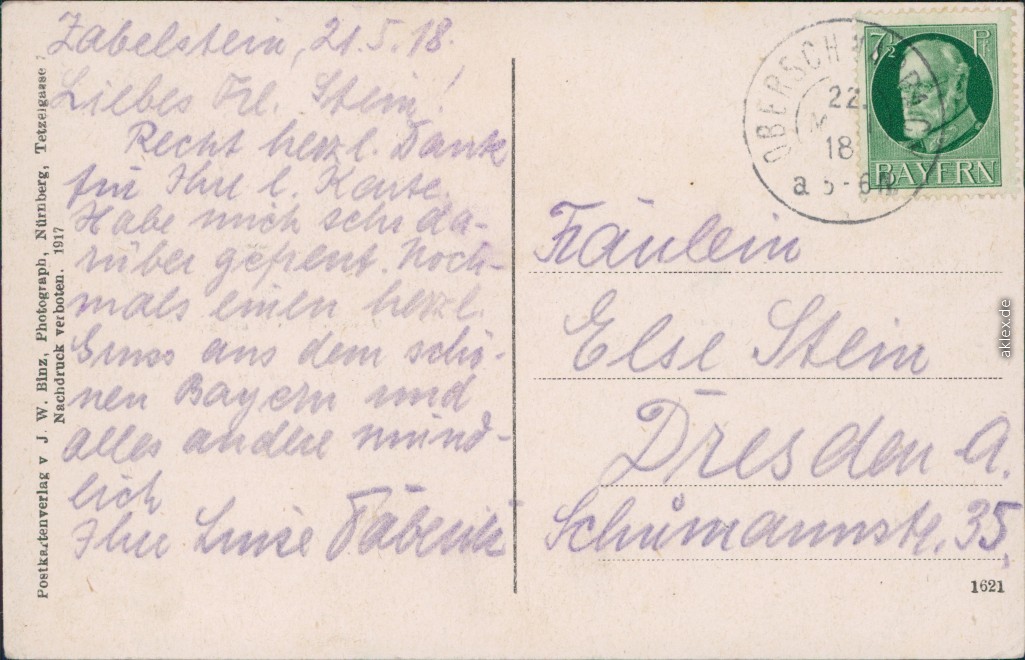 Zabelstein, 21.5.18.
Liebes Frl. Stein!
Recht herzl. Dank
für Ihre l. Karte.
Habe mich sehr da-
rüber gefreut. Noch-
mals einen herzl.
Gruss aus dem schö-
nen Bayern und
alles andere münd-
lich
Ihre Luise
Postkartenverlag v J. W. Binz, Photograph, Nürnberg, Tetzelgasse 7
Nachdruck verboten. 1917
7½ Pf
BAYERN
22.
18
Fräulein
Else Stein
Dresden A.
Schumannstr. 35
1621
aklex.de